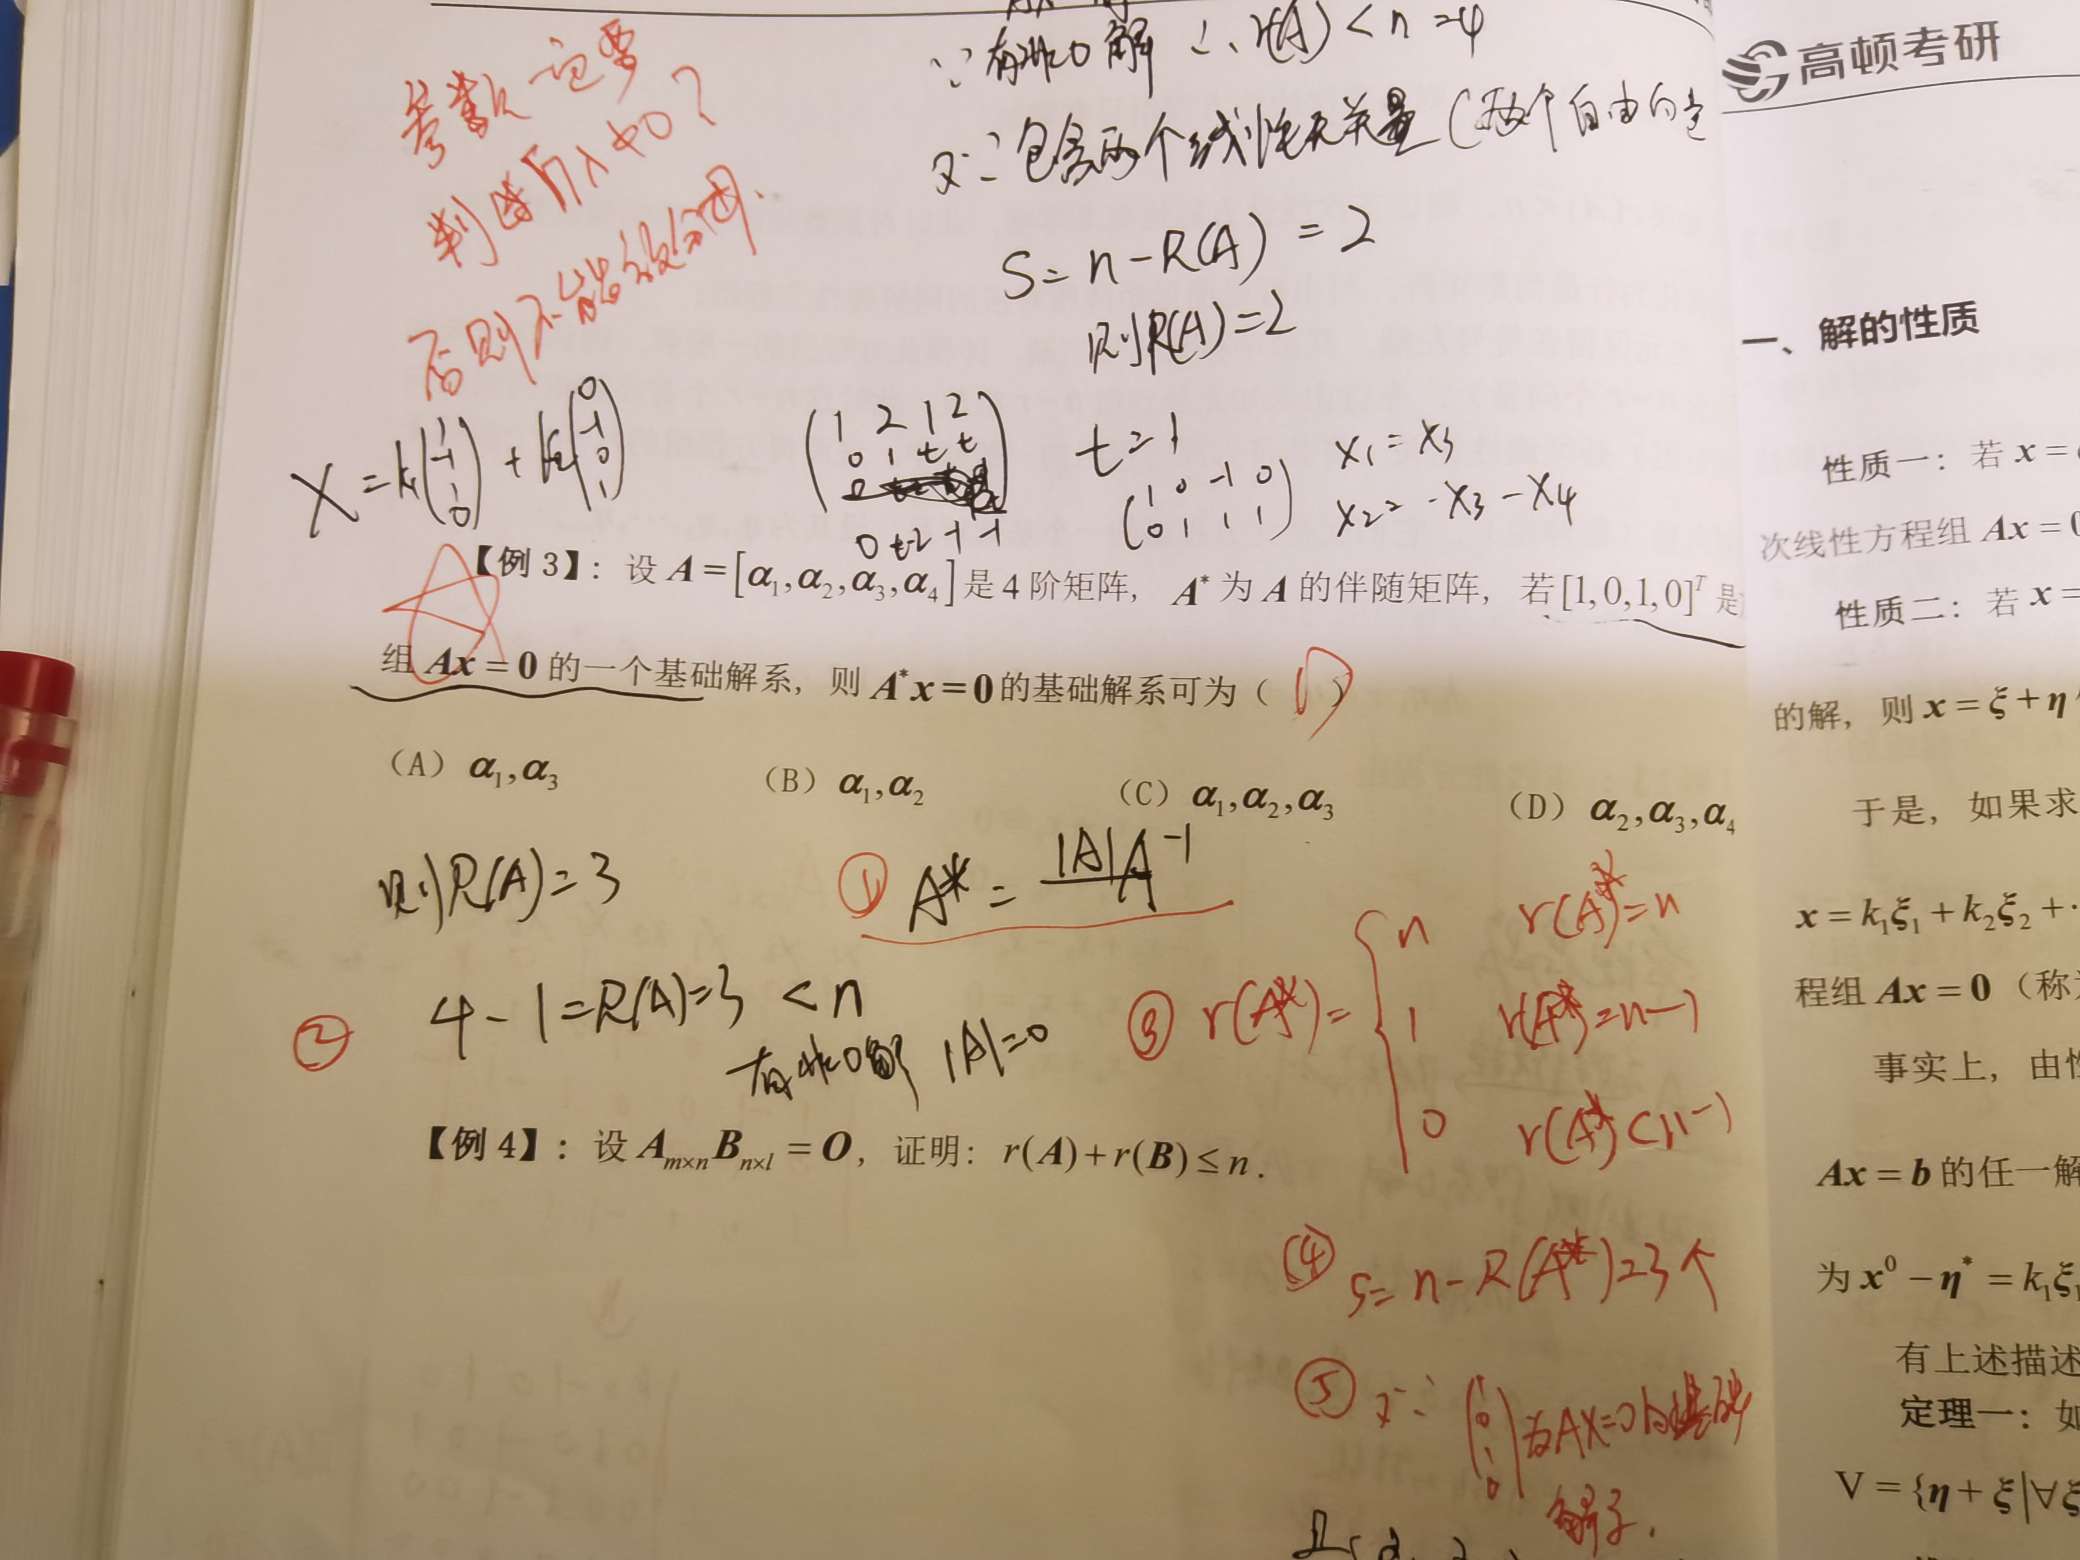 ∵有非0解 ∴ r(A) < n = 4
又∵包含两个线性无关量(两个自由向
S = n - R(A) = 2
则R(A) = 2
参数一定要
判断λ≠0?
否则不能
X = k₁(1 -1 1 0) + k₂(0 -1 0 1)
(1 2 1 2
0 1 t t
0 t-2 -1 -1
t = 1
(1 0 -1 0
0 1 1 1)
x₁ = x₃
x₂ = -x₃ - x₄
【例 3】: 设 A = [α₁, α₂, α₃, α₄] 是 4 阶矩阵, A* 为 A 的伴随矩阵, 若 [1,0,1,0]ᵀ 是
组 Ax = 0 的一个基础解系, 则 A*x = 0 的基础解系可为( D )
(A) α₁, α₃ (B) α₁, α₂ (C) α₁, α₂, α₃ (D) α₂, α₃, α₄
则R(A) = 3
① A* = |A|A⁻¹
② 4 - 1 = R(A) = 3 < n
有非0解 |A| = 0
③ r(A*) = { n r(A*) = n
1 r(A*) = n-1
0 r(A*) < n-1
【例 4】: 设 Aₘₓₙ Bₙₓₗ = O, 证明: r(A) + r(B) ≤ n.
④ S = n - R(A*) = 3个
⑤ 又∵ (1 0 1 0) 为AX=0的基础
解系.
高顿考研
一、解的性质
性质一: 若 x =
次线性方程组 Ax = 0
性质二: 若 x =
的解, 则 x = ξ + η
于是, 如果求
x = k₁ξ₁ + k₂ξ₂ + ·
程组 Ax = 0 (称
事实上, 由
Ax = b 的任一解
为 x⁰ - η* = k₁ξ₁
有上述描述
定理一: 如
V = {η + ξ | ∀ξ